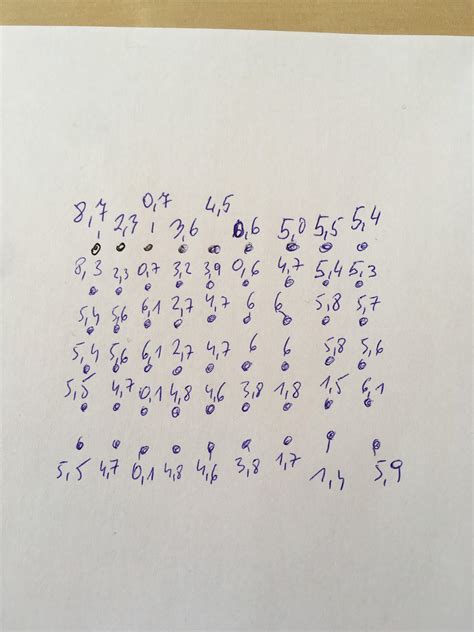 8,7 2,3 0,7 3,6 4,5 0,6 5,0 5,5 5,4
8,3 2,3 0,7 3,2 3,9 0,6 4,7 5,4 5,3
5,4 5,6 6,1 2,7 4,7 6 6 5,8 5,7
5,4 5,6 6,1 2,7 4,7 6 6 5,8 5,6
5,5 4,7 0,1 4,8 4,6 3,8 1,8 1,5 6,1
5,5 4,7 0,1 4,8 4,6 3,8 1,7 1,4 5,9